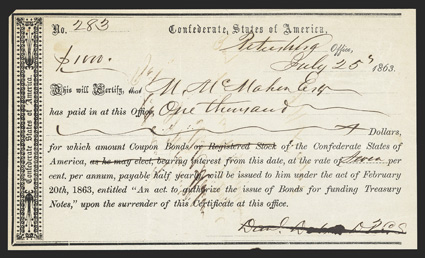 No. 283
Confederate States of America,
Petersburg Office,
$1000. July 25th 1863.
This will Certify, that M. McMahon Esq
has paid in at this Office, One thousand
Dollars,
for which amount Coupon Bonds or Registered Stock of the Confederate States of
America, as he may elect, bearing interest from this date, at the rate of Seven per
cent. per annum, payable half yearly will be issued to him under the act of February
20th, 1863, entitled "An act to authorize the issue of Bonds for funding Treasury
Notes," upon the surrender of this Certificate at this office.
Confederate States of America.